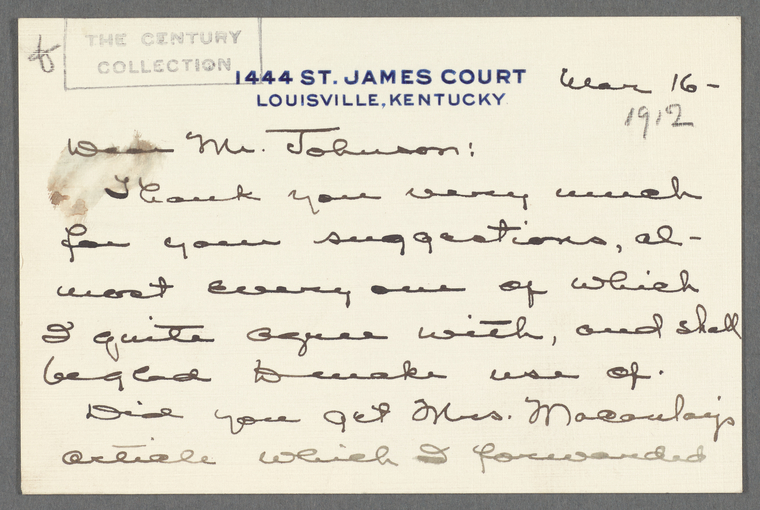 THE CENTURY
COLLECTION
1444 ST. JAMES COURT
LOUISVILLE, KENTUCKY
Mar 16-
1912
Dear Mr. Johnson:
Thank you very much
for your suggestions, al-
most every one of which
I quite agree with, and shall
be glad to make use of.
Did you get Mrs. Macaulay's
article which I forwarded